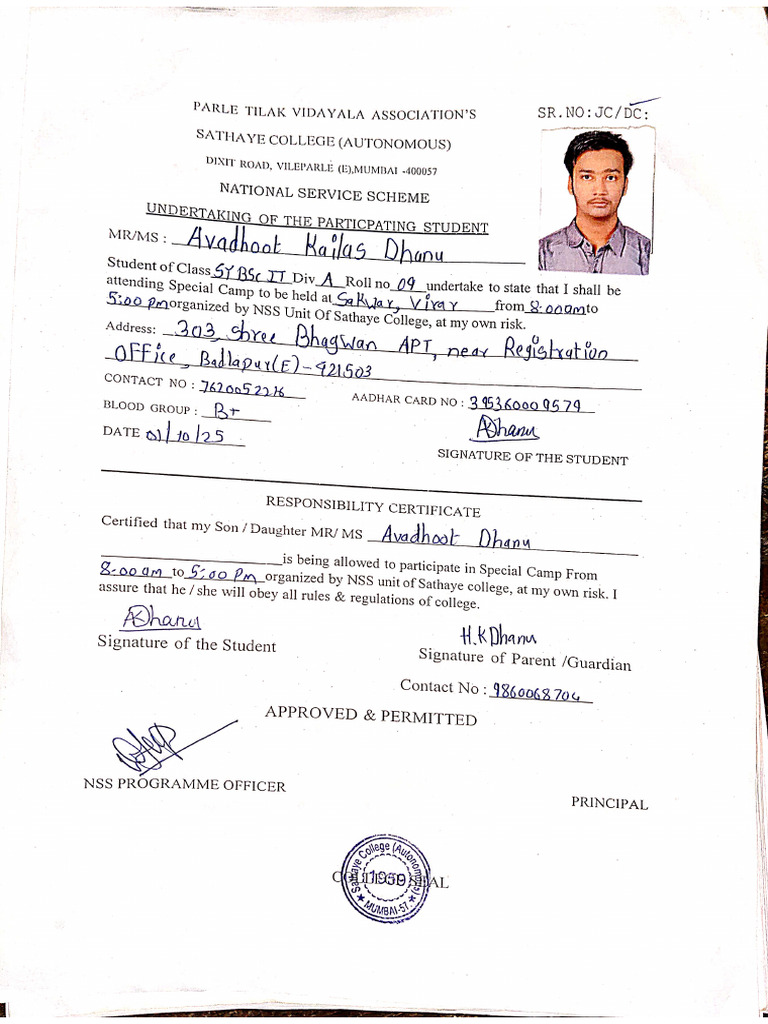 PARLE TILAK VIDAYALA ASSOCIATION'S
SR.NO:JC/DC:
SATHAYE COLLEGE (AUTONOMOUS)
DIXIT ROAD, VILEPARLE (E),MUMBAI -400057
NATIONAL SERVICE SCHEME
UNDERTAKING OF THE PARTICPATING STUDENT
MR/MS : Avadhoot Kailas Dhanu
Student of Class SYBSc IT Div A Roll no 09 undertake to state that I shall be
attending Special Camp to be held at Sakwar, Virar from 8:00am to
5:00 pm organized by NSS Unit Of Sathaye College, at my own risk.
Address: 303, Shree Bhagwan APT, near Registration
Office, Badlapur(E)-421503
CONTACT NO : 7620052276
AADHAR CARD NO : 395360009579
BLOOD GROUP : B+
ADhanu
DATE 01/10/25
SIGNATURE OF THE STUDENT
RESPONSIBILITY CERTIFICATE
Certified that my Son / Daughter MR/ MS Avadhoot Dhanu
is being allowed to participate in Special Camp From
8:00 am to 5:00 Pm organized by NSS unit of Sathaye college, at my own risk. I
assure that he / she will obey all rules & regulations of college.
ADhanu
H.K Dhanu
Signature of the Student
Signature of Parent /Guardian
Contact No : 9860068704
APPROVED & PERMITTED
NSS PROGRAMME OFFICER
PRINCIPAL
Sathaye College (Autonomous)
1959
COLLEGE SEAL
MUMBAI-57.